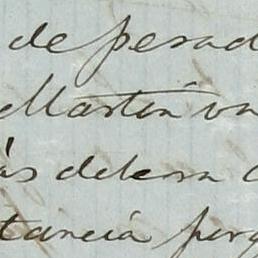 de pesad
Martin va
ás deben
tancia porq